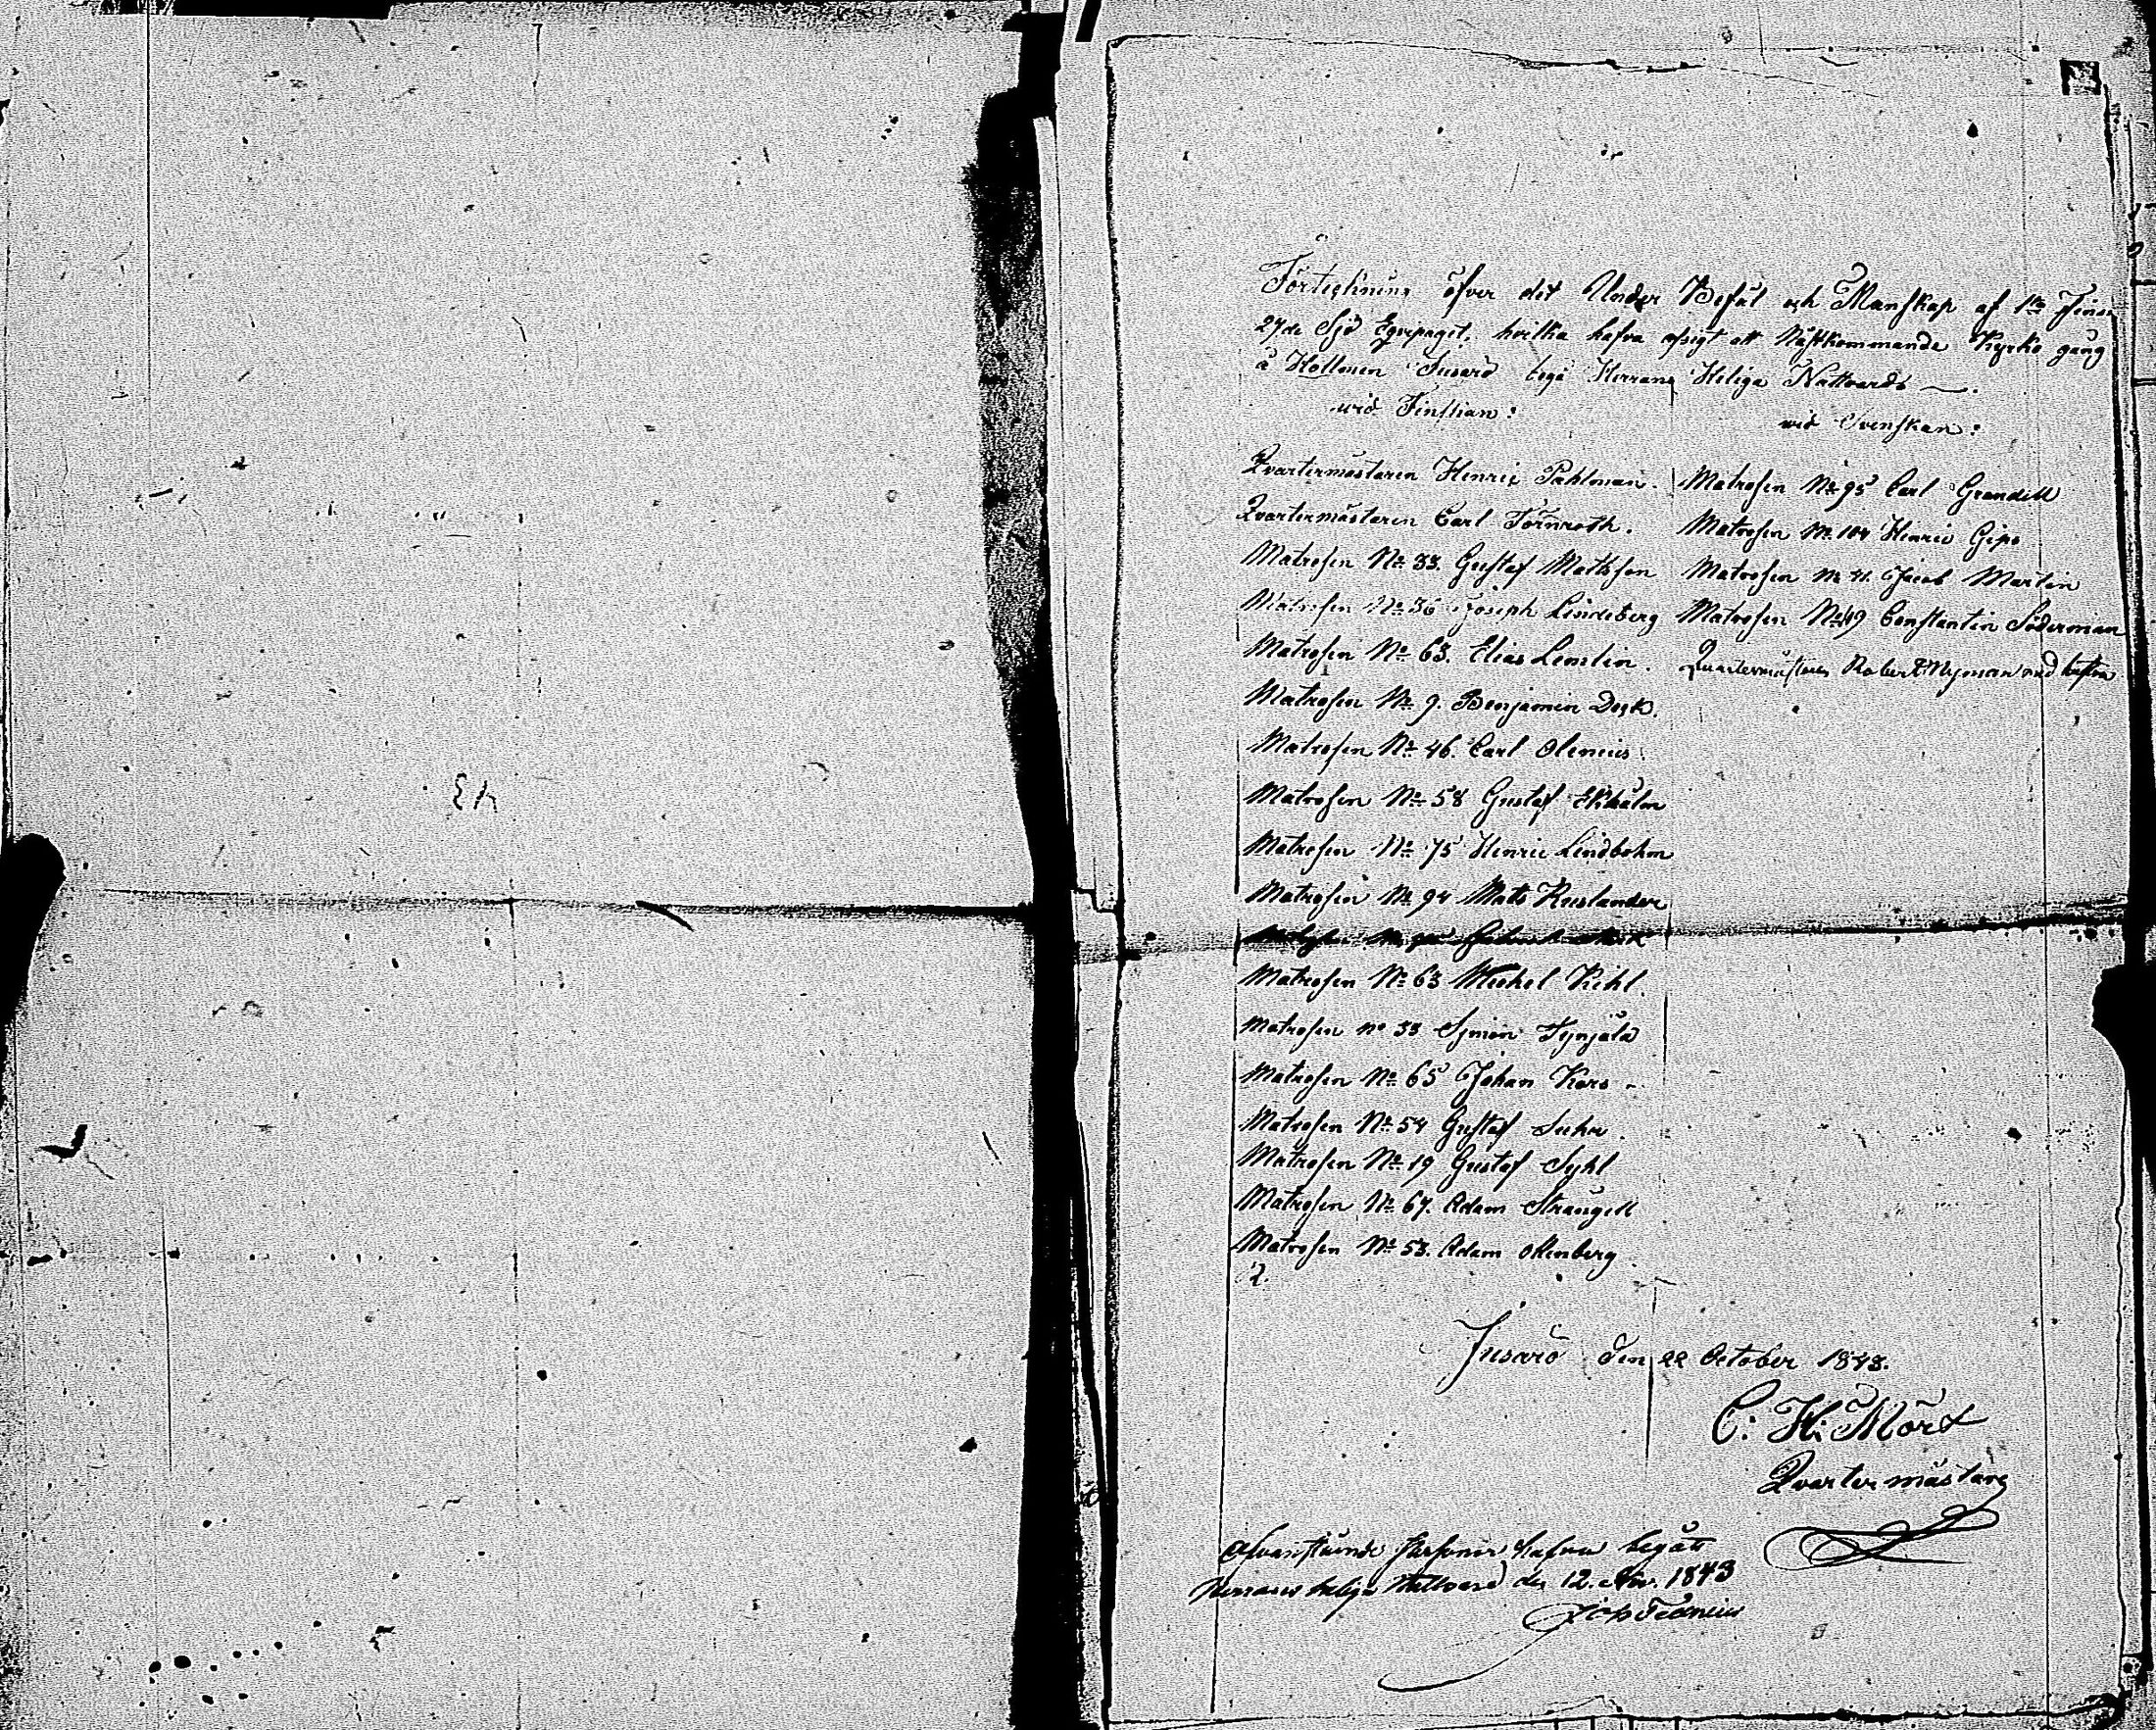 Förtekning öfver det Under Befäl och Manskap af 1sta Finska
27de Sjö Eqvipaget, hvilka hafva afsigt att Nästkommande Kyrko gång
å Hollmen Jusarö begå Herrans Heliga Nattvards
wid Finskan:
wid Svenskan:
Qvartermästaren Henric Pahlman.
Qvartermästaren Carl Törnroth.
Matrosen No 33. Gustaf Mattsson
Matrosen No 36 Joseph Lindeberg
Matrosen No 63. Elias Lemlin.
Matrosen No 9. Benjamin
Matrosen No 46. Carl Olenius.
Matrosen No 58 Gustaf Ekholm
Matrosen No 75 Henric Lindbohm
Matrosen No 94 Mats Ruslander
Matrosen No 63 Michel Kihl
Matrosen No 33 Simon Tynjälä
Matrosen No 65 Johan Kars
Matrosen No 54 Gustaf Suhr.
Matrosen No 19 Gustaf Syhl
Matrosen No 67. Adam Strangell
Matrosen No 53. Adam Ollenberg
Matrosen No 95 Carl Grandell
Matrosen No 104 Henric Gips
Matrosen No 41. Jacob Martin
Matrosen No 49 Constantin Söderman
Quartermästaren Robert Nyman med hustru
Jusarö den 22 October 1843.
C: H: Mört
Qvarter mästare
Ofvanstående personer hafva begått
Herrans heliga Nattvard den 12. Nov. 1843